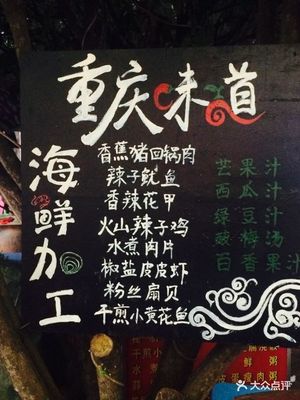 重庆味道
海鲜加工
香蕉猪回锅肉
辣子鱿鱼
香辣花甲
火山辣子鸡
水煮肉片
椒盐皮皮虾
粉丝扇贝
干煎小黄花鱼
芒果汁
西瓜汁
绿豆汁
酸梅汤
百香果汁
大众点评